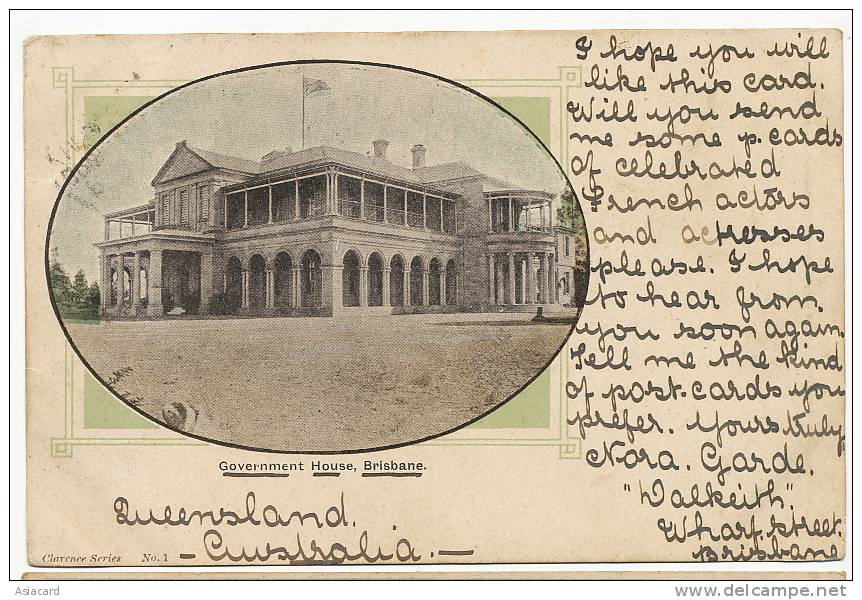 I hope you will
like this card.
Will you send
me some p. cards
of celebrated
French actors
and actresses
please. I hope
to hear from
you soon again.
Tell me the kind
of post-cards you
prefer. Yours truly
Nora. Garde.
"Walkeith".
Wharf. Street.
Brisbane
Government House, Brisbane.
Queensland.
- Australia. -
Clarence Series No. 1
Asiacard
delcampe.net